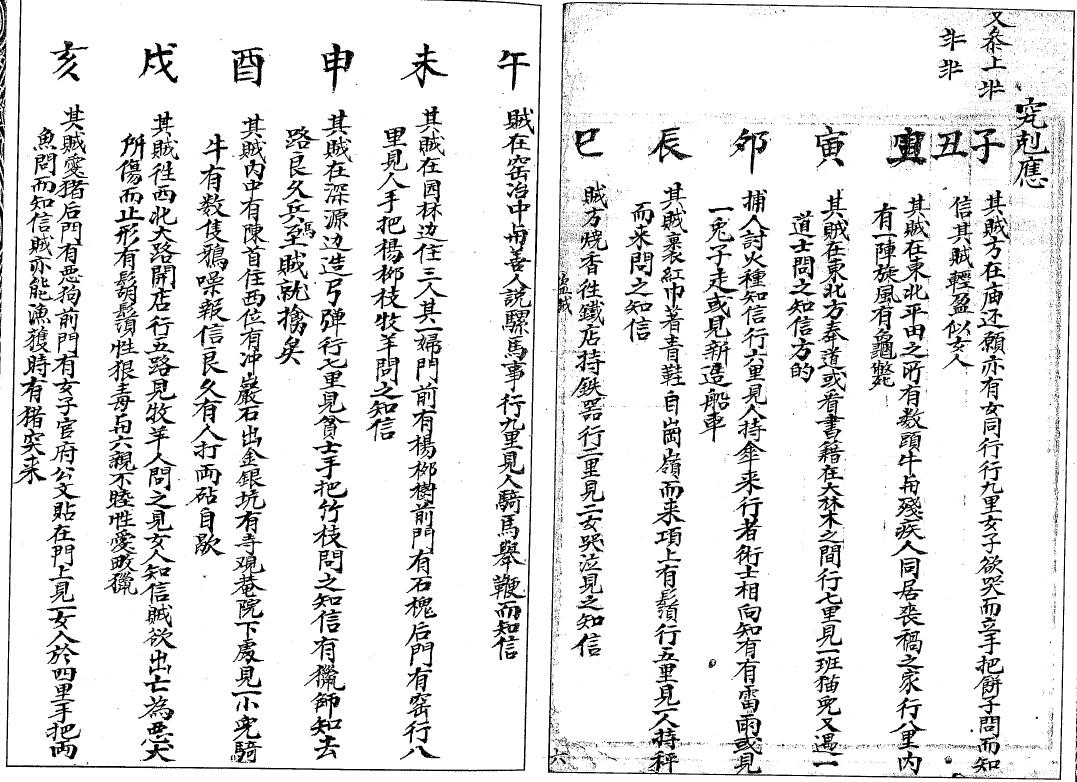 究尅應
又叅上
子 其賊方在庙还願亦有女同行行九里女子欲哭而立手把餅子問而知
信其賊輕盈似女人
丑 其賊在東北平田之所有数頭牛与殘疾人同居丧禍之家行八里内
有一陣旋風有龜鼈
寅 其賊在東北方奉道或看書籍在大林木之間行七里見一班猫兒又遇一
道士問之知信方的
卯 捕人討火種知信行六里見人持傘来行者術士相向知有有雷雨或見
一兎子走或見新造船車
辰 其賊裹紅巾著青鞋自崗嶺而来項上有鬚行五里見一人持秤
而来問之知信
巳 賊方焼香徃鐵店持鉄器行二里見二女哭泣見之知信
盗賊 六
午 賊在窑冶中与善人説騾馬事行九里見人騎馬舉鞭而知信
未 其賊在园林边住三人其一婦門前有楊栁樹前門有石槐后門有窑行八
里見人手把楊栁枝牧羊問之知信
申 其賊在深源边造弓弹行七里見貧士手把竹枝問之知信有獵師知去
路良久兵馬至賊就擒矣
酉 其賊内中有陳首住西位有冲巖石出金銀坑有寺观菴院下處見一小兒騎
牛有数隻鴉噪報信良久有人打両砧自歇
戌 其賊徃西北大路開店行五路見牧羊人問之見女人知信賊欲出亡為悪犬
所傷而止形有鬍鬚性狠毒与六親不睦性愛畋獵
亥 其賊愛猪后門有悪狗前門有女子官府公文貼在門上見一女人於四里手把両
魚問而知信賊亦能漁獲時有猪突来